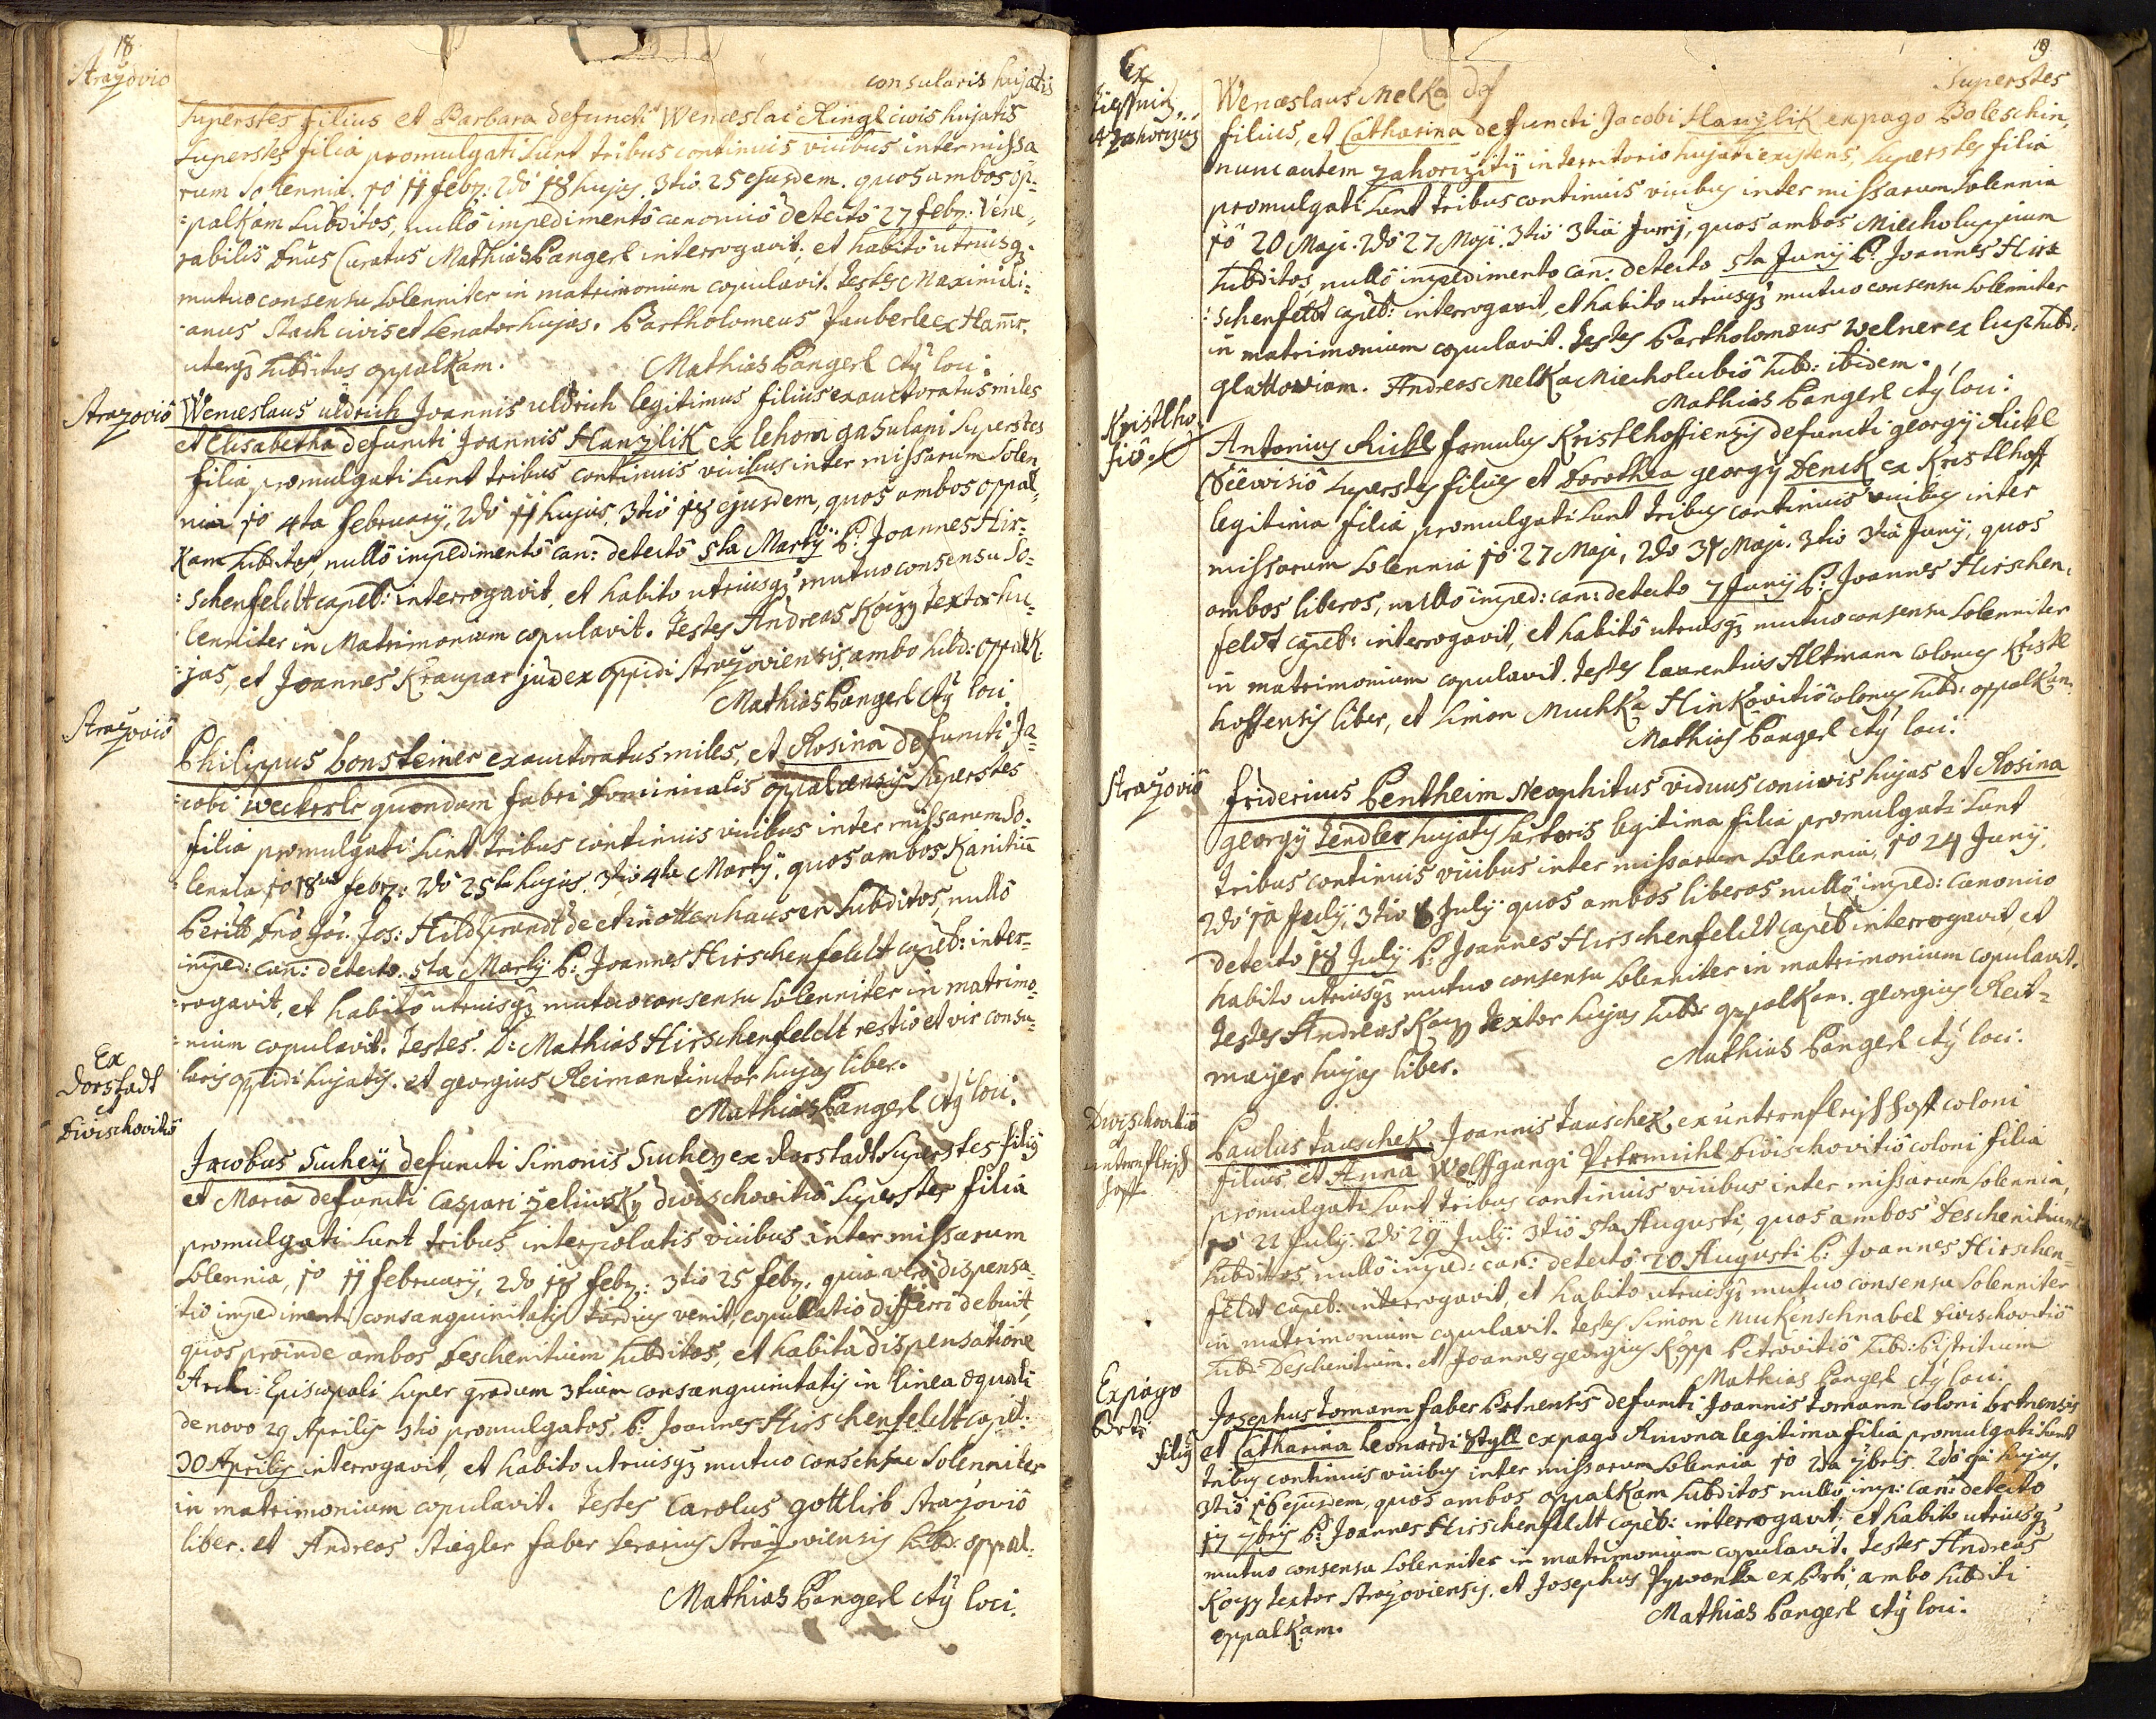 18
Strazovio
consularis hujatis
Superstes filius et Barbara defuncti Wenceslai Ringl civis hujatis
Superstes filia promulgati sunt tribus continuis vicibus inter missa
rum solennia. 1o 11 febr: 2do 18 hujus. 3tio 25 ejusdem. quos ambos op-
=palkam subditos, nullo impedimento canonico detecto 27 febr: Vene-
rabilis Dnus Curatus Mathias Pangerl interrogavit, et habito utriusq3
mutuo consensu solenniter in matrimonium copulavit. Testes Maximili=
=anus Stach civis et senator hujas. Bartholomeus Jauberle ex Hamr.
uterq3 subditus oppalkam.
Mathias Pangerl cty loci.
Strazovio
Wenceslaus uldrich Joannis uldrich legitimus filius exauctoratus miles
et Elisabetha defuncti Joannis Hanzlik ex lehom gasulani Superstes
filia promulgati sunt tribus continuis vicibus inter missarum solen
nia 1o 4ta february, 2do 11 hujus, 3tio 18 ejusdem, quos ambos oppal=
Kam subditos nullo impedimento can: detecto 5ta Martÿ P: Joannes Hir=
=schenfeldt capel: interrogavit, et habito utriusq3 mutuo consensu so=
lenniter in Matrimonium copulavit. Testes Andreas Koczy textor hu=
=jas, et Joannes Kraupar judex oppidi Strazoviensis ambo subd: oppalK.
Mathias Pangerl cty loci
Strazovio
Philippus Lonsteiner exauctoratus miles, et Rosina defuncti Ja=
=cobi Weckerle quondam fabri Dominicalis oppalcensis Superstes
filia promulgati sunt tribus continuis vicibus inter missarum so=
lennia 1o 18va febr: 2do 25ta hujus. 3tio 4ta Martÿ. quos ambos Kanitiu
Perill Dno Joi: Jos: Hildprandt de et in ottenhausen subditos, nullo
imped: can: detecto. 5ta Martÿ P: Joannes Hirschenfeldt capel: inter=
=rogavit, et habito utriusq3 mutuo consensu solenniter in matrimo=
=nium copulavit. Testes. D: Mathias Hirschenfeldt restio et vir consu=
laris oppidi hujatis. et georgius Reiman tinctor hujas liber.
Mathias Pangerl cty loci.
Ex
Dorstadt
et
Diwischovitio
Jacobus Sucheÿ defuncti Simonis Suchey ex dorstadt superstes filig
et Maria defuncti Caspari zelinsky diwischovitio superstes filia
promulgati sunt tribus interpolatis vicibus inter missarum
Solennia, 1o 11 february, 2do 18 febr: 3tio 25 febr. quia vero dispensa=
tio impedimenti consanguinitatis tardius venit, copulatio differri debuit,
quos proinde ambos Deschenitium subditos, et habita dispensatione
Archi=Episcopali super gradum 3tium consanguinitatis in linea aequali
de novo 29 Aprilis 3tio promulgatos P. Joannes Hirschenfeldt capel:
30 Aprilis interrogavit, et habito utriusq3 mutuo consensu solenniter
in matrimonium copulavit. Testes Carolus gottlieb Strazovio
liber. et Andreas Stiegler faber serarius Strazoviensis subd: oppal.
Mathias Pangerl cty loci.
19
Ex
et zahorziz
Superstes
Wenceslaus Melka
filius, et Catharina defuncti Jacobi Hanzlik ex pago Boleschin,
nunc autem zahorzitÿ in territorio hujati existens, Superstes filia
promulgati sunt tribus continuis vicibus inter missarum solennia
1o 20 Maji. 2do 27 Maji. 3tio 3tia Junij, quos ambos Miecholupium
subditos, nullo impedimento can: detecto 5ta Junÿ P: Joannes Hir=
=schenfeldt capel: interrogavit, et habito utriusq3 mutuo consensu solenniter
in matrimonium copulavit. Testes Bartholomeus Welner ex lup subd:
glattoviam. Andreas Melka Miecholubio subd: ibidem.
Mathias Pangerl cty loci.
Kristlho
fio.
Antonius Rickl famulus Kristlhoffiensis defuncti georgÿ Rickl
superstes filius et Dorothea georgÿ Denck ex Kristlhoff
legitima filia promulgati sunt tribus continuis vicibus inter
missarum solennia 1o 27 Maji, 2do 31 Maji. 3tio 3tia Junÿ, quos
ambos liberos, nullo imped: can: detecto 7 Junÿ P: Joannes Hirschen=
feldt capel: interrogavit, et habito utriusq3 mutuo consensu solenniter
in matrimonium copulavit. Testes Laurentius Altmann colonus Kristl
hoffensis liber, et Simon Muchka Hinkovitio colonus subd: oppalkam.
Mathias Pangerl cty loci.
Strazovio
Fridericus Pentheim Neophitus viduus conicivis hujas et Rosina
georgÿ Tendler hujatis sartoris legitima filia promulgati sunt
tribus continuis vicibus inter missarum solennia, 1o 24 Junÿ,
2do 1a Julÿ, 3tio 8 Julÿ quos ambos liberos nullo imped: canonico
detecto 18 July P: Joannes Hirschenfeldt capel interrogavit, et
habito utriusq3 mutuo consensu solenniter in matrimonium copulavit.
Testes Andreas Koczy textor hujas subd: oppalkam. georgius Reit=
mayer hujas liber.
Mathias Pangerl cty loci.
Diwischovitio
et
unternfleisch
hoff
Paulus Tauschek, Joannis Tauschek, ex unternfleischhoff coloni
filius, et Anna Wolffgangi Petrmichl Diwischovitio coloni filia
promulgati sunt tribus continuis vicibus inter missarum solennia,
1o 22 July. 2do 29 July. 3tio 5ta Augusti, quos ambos Deschenitium
subditos, nullo imped: can: detecto 20 Augusti P: Joannes Hirschen=
feldt capel: interrogavit, et habito utriusq3 mutuo consensu solenniter
in matrimonium copulavit. Testes Simon Muckenschnabel Diwischovitio
subd: Deschenitium. et Joannes georgius Kopp Petrovitio subd: Bistritium
Mathias Pangerl cty loci.
Ex pago
Brti
Josephus Tomann faber Brtnensis defuncti Joannis Tomann coloni brtnensis
filig et Catharina Leonardi Stÿll ex pago Rimona legitima filia promulgati sunt
tribus continuis vicibus inter missarum solennia 1o 2da 7bris. 2do 9a hujus.
3tio 16 ejusdem, quos ambos oppalkam subditos nullo imp: can: detecto
17 7bris P: Joannes Hirschenfeldt capel: interrogavit, et habito utriusq3
mutuo consensu solenniter in matrimonium copulavit. Testes Andreas
Koczy textor Strazoviensis. et Josephus Pywonka ex Brti, ambo subditi
oppalkam.
Mathias Pangerl cty loci.